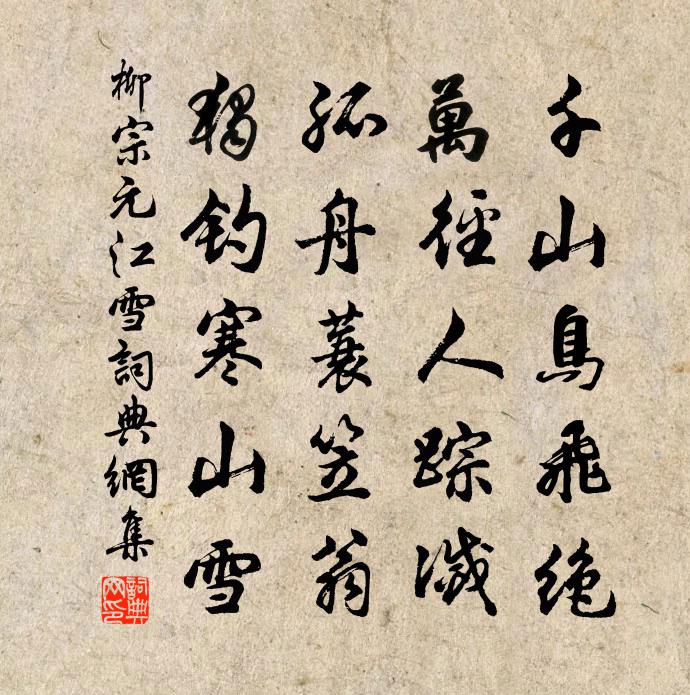 千山鳥飛絶
萬徑人踪滅
孤舟蓑笠翁
獨釣寒山雪
柳宗元江雪詞典網集
詞典
网印